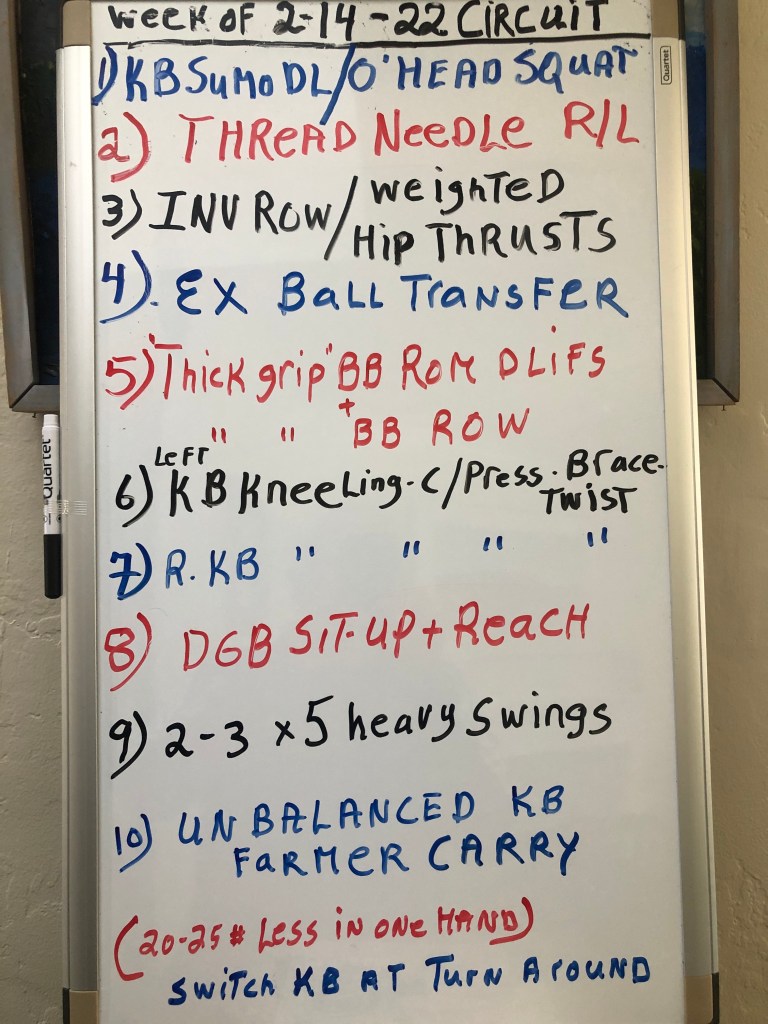 WEEK OF 2-14-22 CIRCUIT
1) KB SUMO DL/O'HEAD SQUAT
Quartet
2) THREAD NEEDLE R/L
3) INV ROW/WEIGHTED
HIP THRUSTS
4). EX BALL TRANSFER
5) "Thick grip" BB ROM DLIFS
+
" " BB ROW
Quartet
LEFT
6) KB KneeLing-C/Press. Brace-
TWIST
7) R. KB " " " "
8) DGB SIT-UP + REACH
9) 2-3 x 5 heavy Swings
10) UNBALANCED KB
FARMER CARRY
(20-25# LESS IN ONE HAND)
SWITCH KB AT TURN AROUND